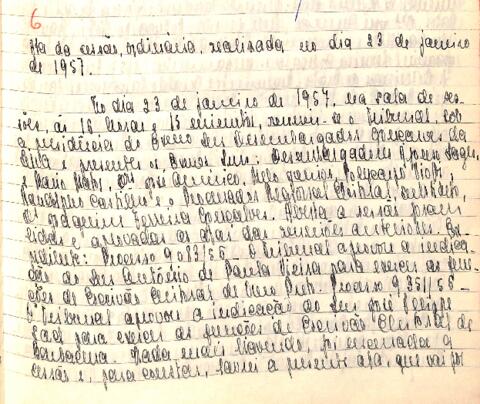 6
Ata da sessão ordinária, realizada no dia 23 de janeiro
de 1957.
No dia 23 de janeiro de 1957, na sala de ses-
sões, às 16 horas e 15 minutos, reuniu-se o Tribunal, sob
a presidência do Exmo Des Desembargador
e presentes os Exmos Snrs: Desembargadores
Mário Matos, José Américo,
Castilho e o Procurador Regional Eleitoral,
Ferreira Gonçalves. Aberta a sessão foram
lidas e aprovadas as atas das reuniões anteriores.
Processo 9083/56 o Tribunal aprovou a indica-
ção do Snr Antônio de Paula Vieira para exercer as fun-
ções de Escrivão Eleitoral de Ouro Processo 9351/56 -
O Tribunal aprovou a indicação do Snr José Felippe
para exercer as funções de Escrivão Eleitoral de
Barbacena. Nada mais havendo, foi encerrada a
sessão e, para constar, lavrei a presente ata, que vai por